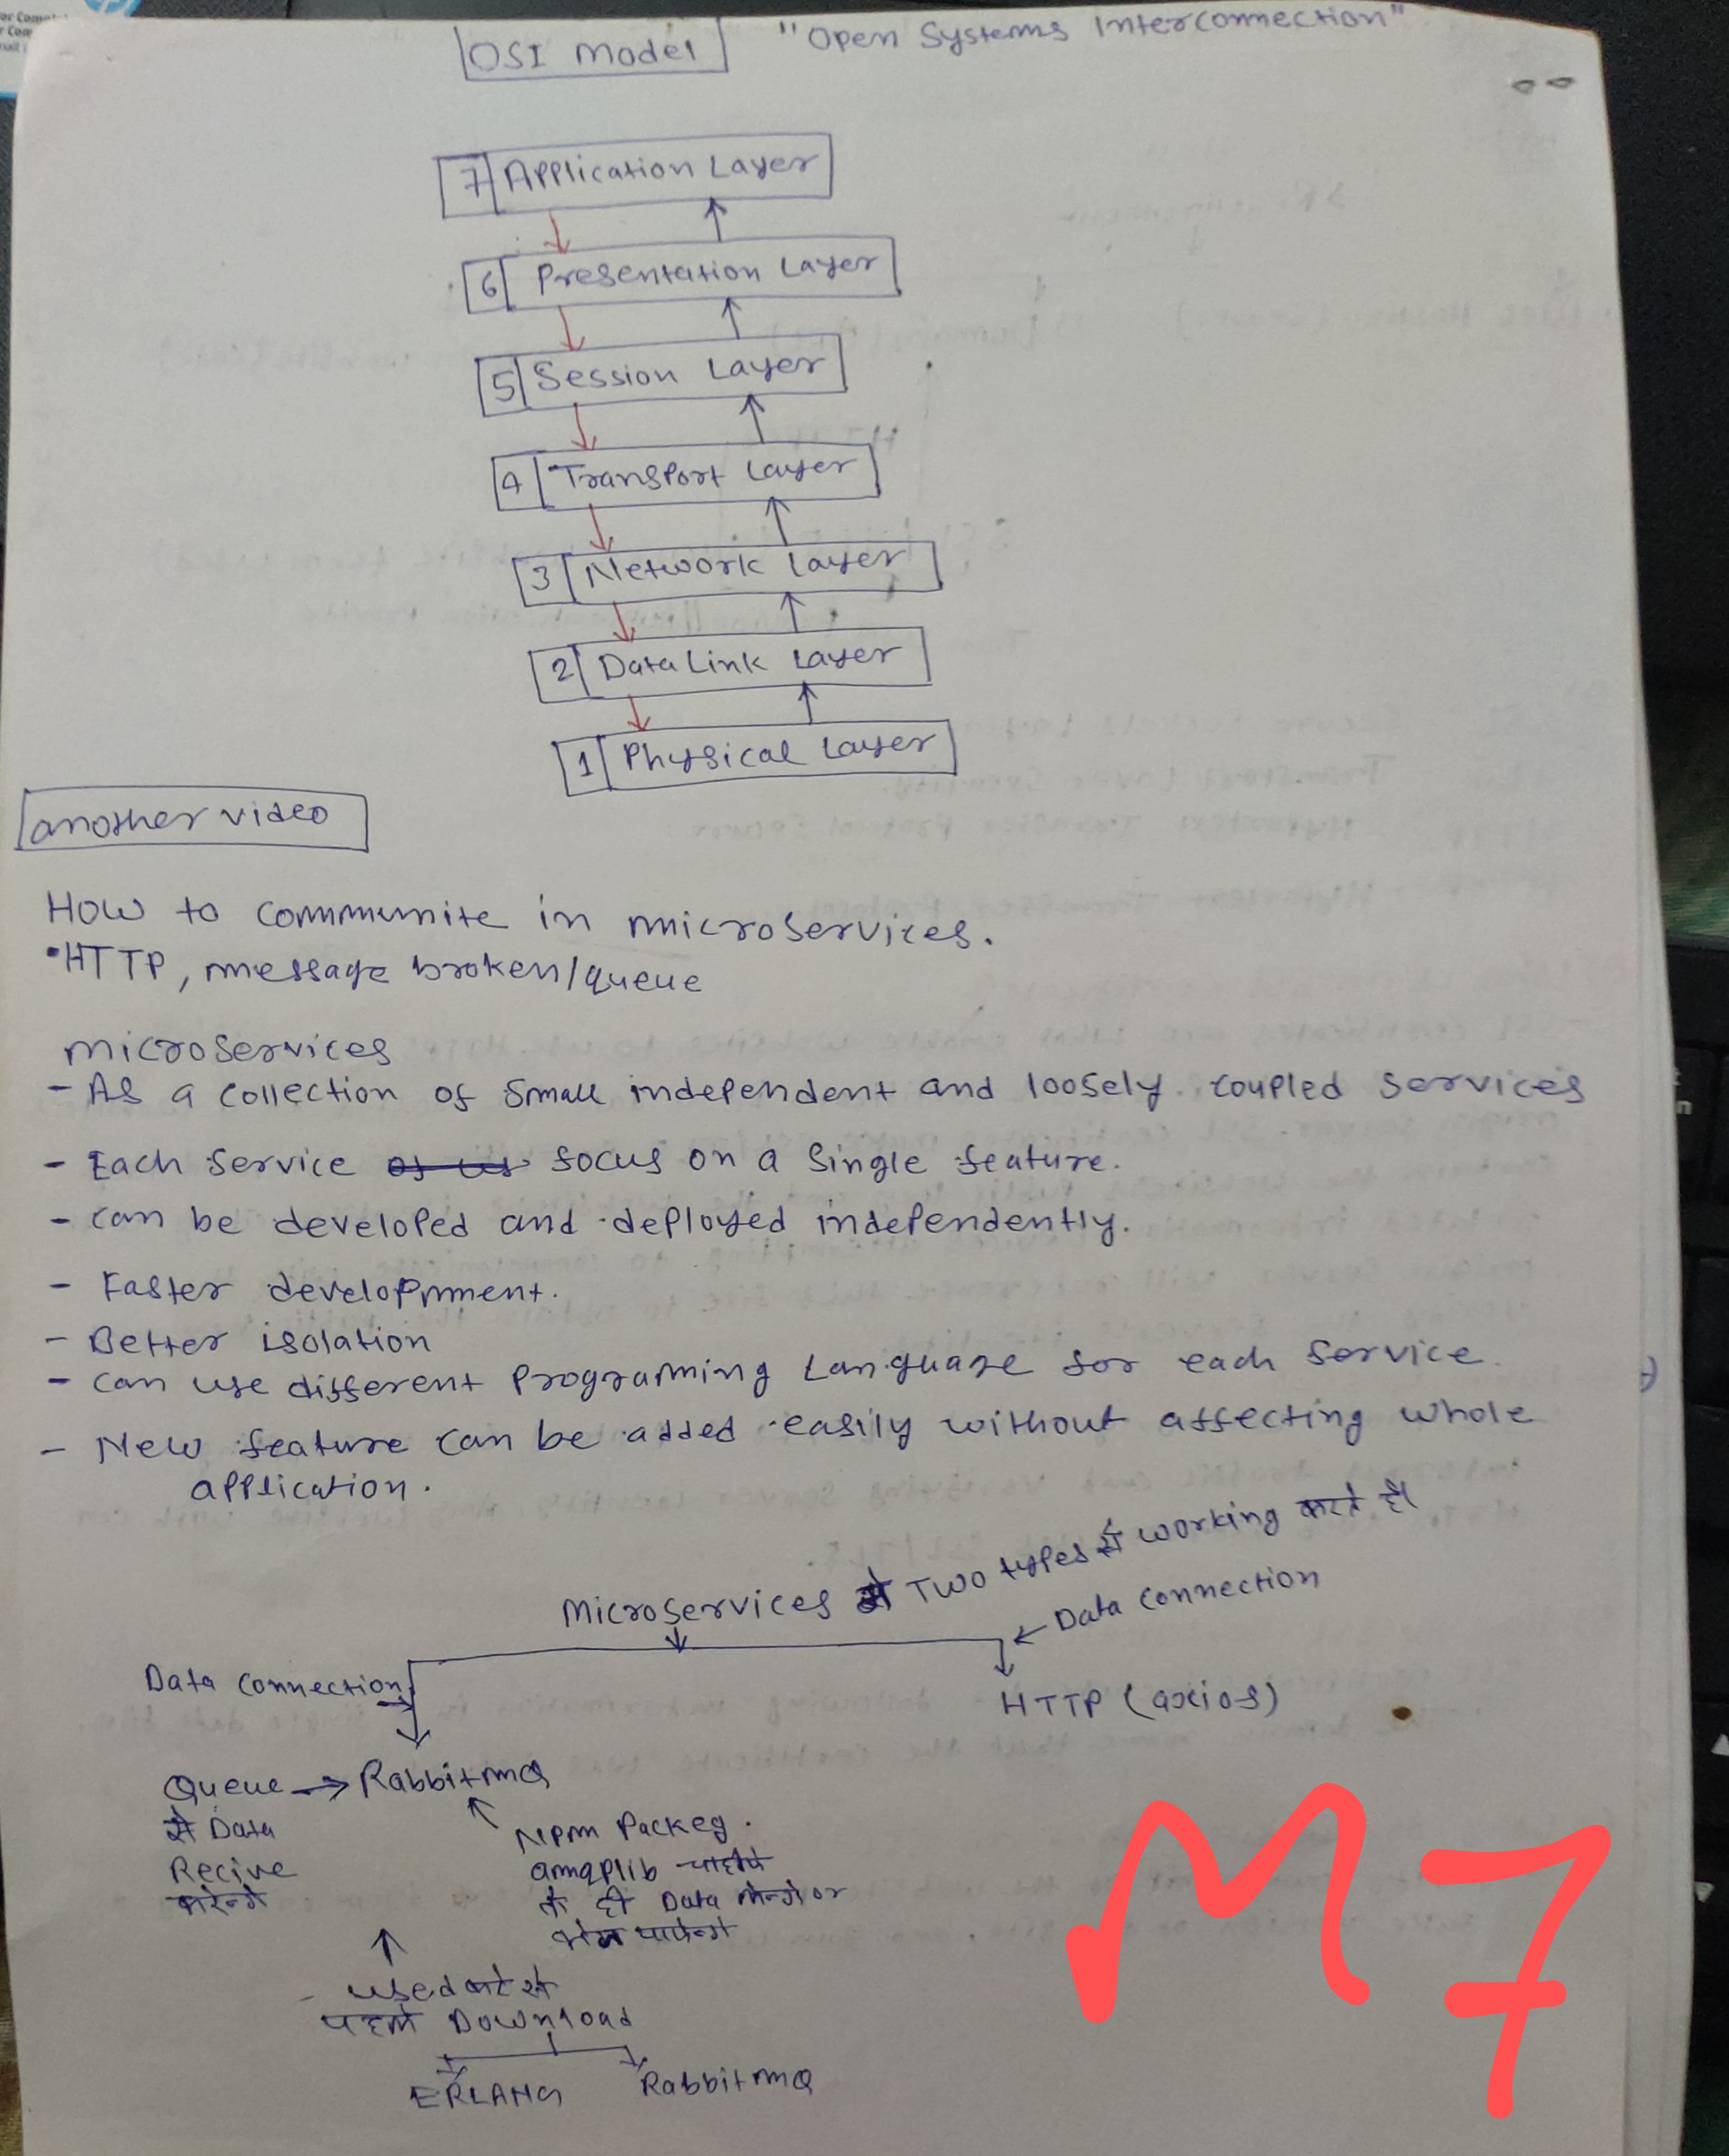 OSI Model "Open Systems Interconnection"
7 Application Layer
6 Presentation Layer
5 Session Layer
4 Transport Layer
3 Network Layer
2 Data Link Layer
1 Physical Layer
another video
How to commumite in microservices.
• HTTP, message broken/queue
microservices
- As a collection of small independent and loosely coupled services
- Each service focus on a single feature.
- can be developed and deployed independently.
- Faster developmment.
- Better isolation
- can use different Programing Language for each service.
- New feature can be added easily without affecting whole
application.
Microservices Two types से working करते है।
Data connection
Data connection
HTTP (axios)
Queue → RabbitmQ
से Data
Recive
करेन्गे
NPM Packeg.
amqplib चाहीये
Data or
used
पहले Download
ERLANG RabbitmQ
M7